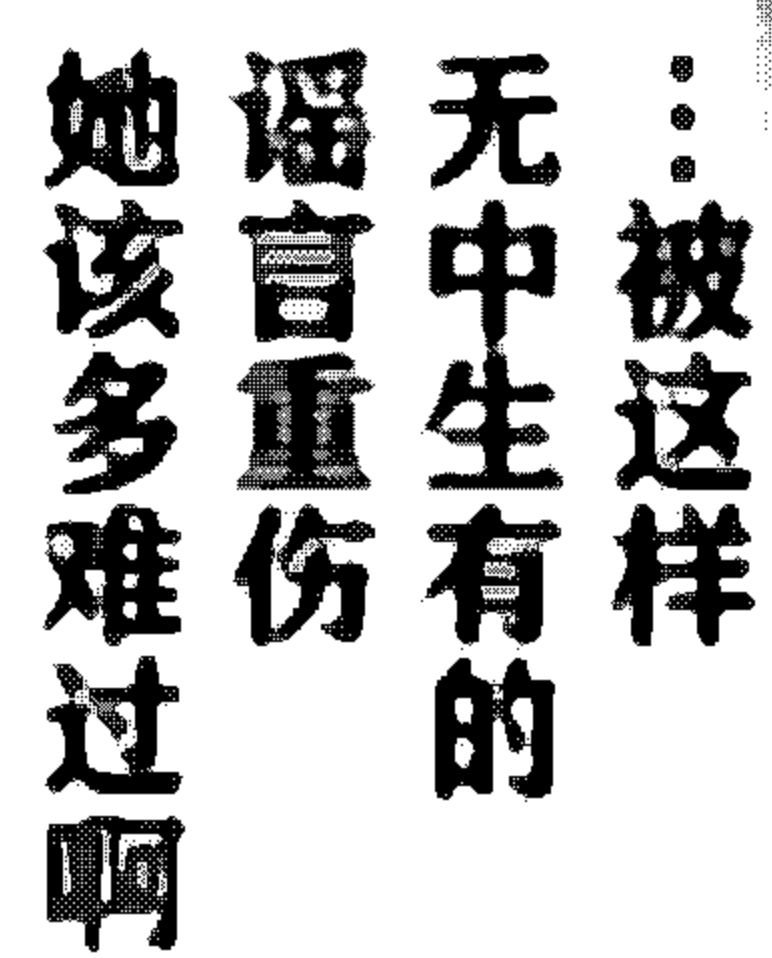 …被这样
无中生有的
谣言重伤
她该多难过啊